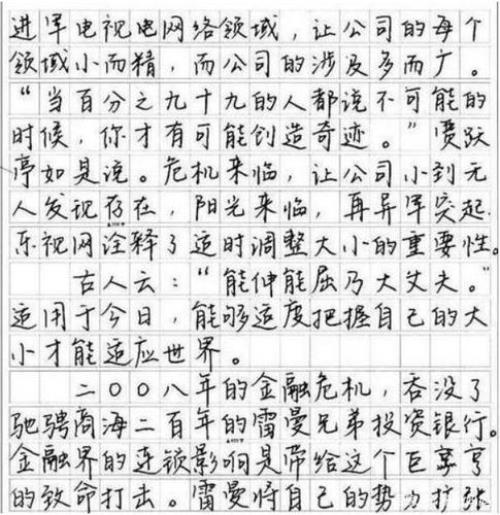 进军电视电网络领域，让公司的每个
领域小而精，而公司的涉及多而广。
“当百分之九十九的人都说不可能的
时候，你才有可能创造奇迹。”贾跃
亭如是说。危机来临，让公司小到无
人发现存在，阳光来临，再异军突起。
乐视网诠释了适时调整大小的重要性。
古人云：“能伸能屈乃大丈夫。”
适用于今日，能够适度把握自己的大
小才能适应世界。
二〇〇八年的金融危机，吞没了
驰骋商海二百年的雷曼兄弟投资银行。
金融界的连锁影响是带给这个巨擘
的致命打击。雷曼将自己的势力扩张